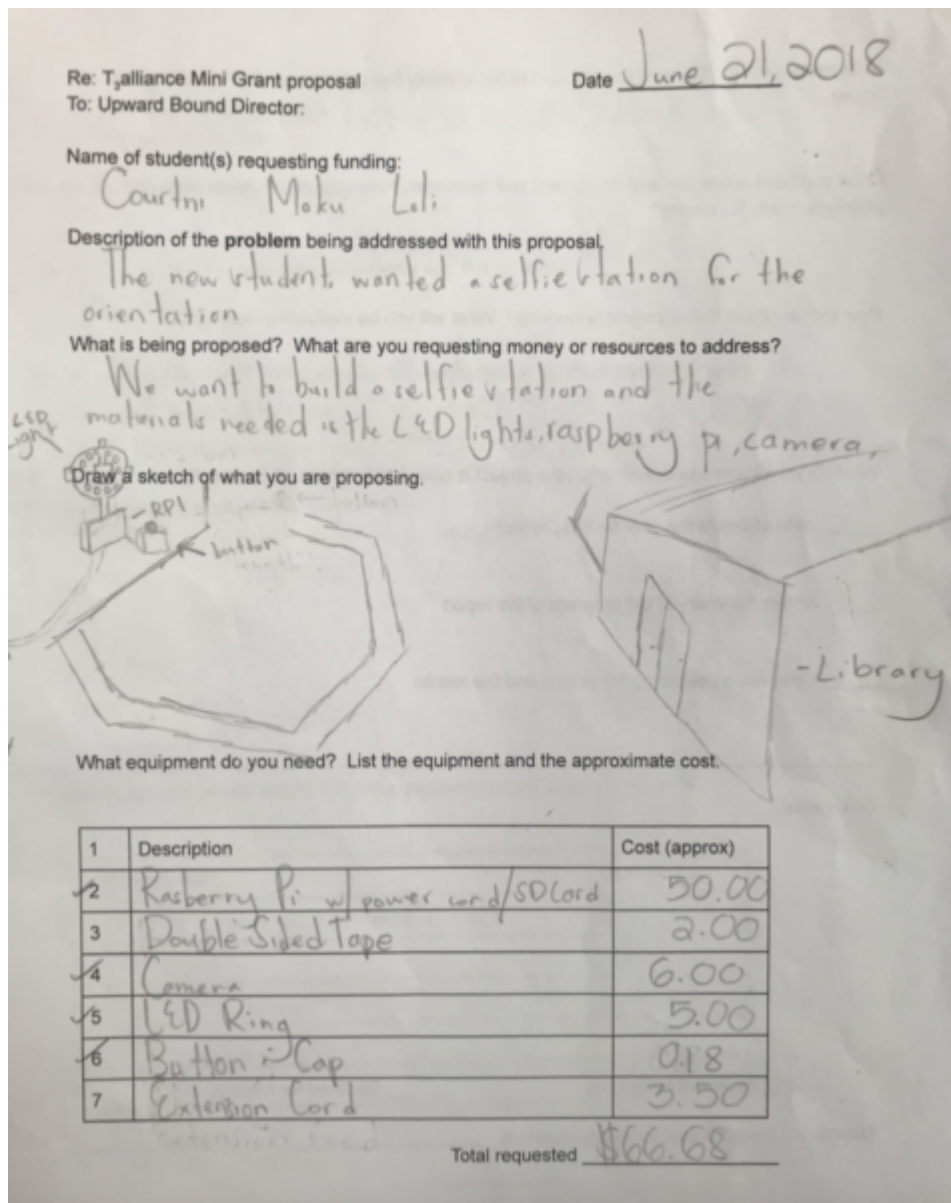 Re: T3alliance Mini Grant proposal Date June 21, 2018
To: Upward Bound Director:
Name of student(s) requesting funding:
Courtni Moku Loli
Description of the problem being addressed with this proposal.
The new student wanted a selfie station for the
orientation
What is being proposed? What are you requesting money or resources to address?
We want to build a selfie station and the
materials needed is the LED lights, raspberry pi, camera,
LED
light
Draw a sketch of what you are proposing.
RPI
button
- Library
What equipment do you need? List the equipment and the approximate cost.
1 Description Cost (approx)
2 Rasberry Pi w/ power cord/SD Card 50.00
3 Double Sided Tape 2.00
4 Camera 6.00
5 LED Ring 5.00
6 Button Cap 0.18
7 Extension Cord 3.50
Total requested $66.68